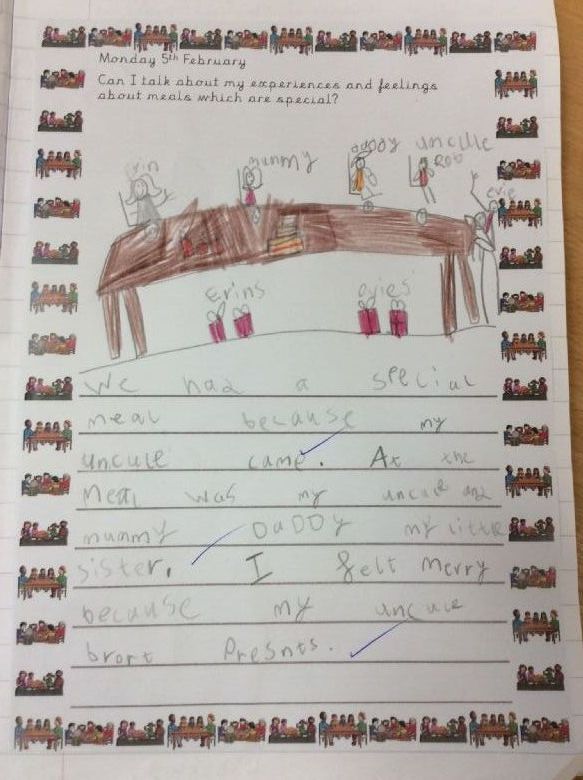 Monday 5th February
Can I talk about my experiences and feelings
about meals which are special?
Erin mummy daddy uncule
Rob
evie
Erins evies
We had a special
meal because my
uncule came. At the
Meal was my uncule and
mummy Daddy my little
sister. I felt Merry
because my uncule
brort Presnts.